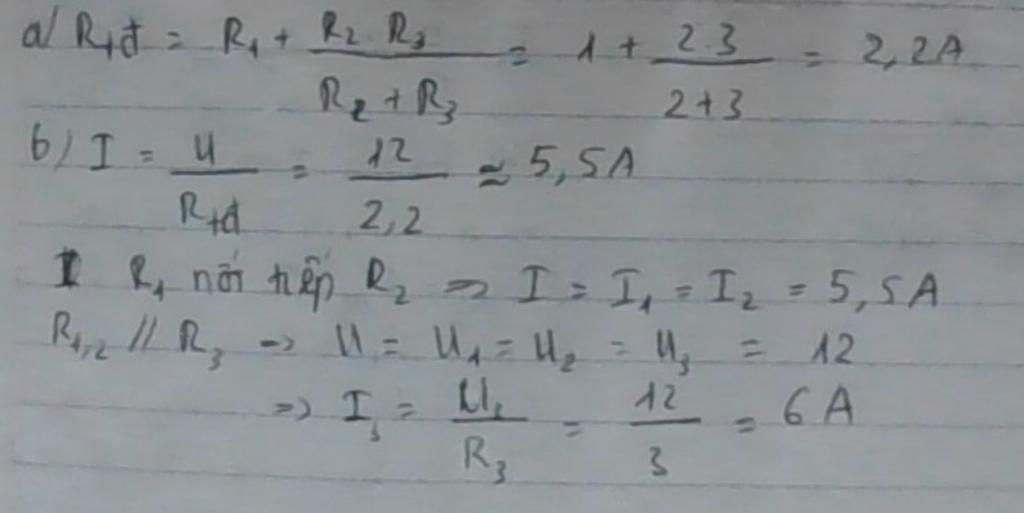 a/ Rtđ = R1 + R2.R3 / R2 + R3 = 1 + 2.3 / 2+3 = 2,2A
b/ I = U / Rtđ = 12 / 2,2 ≈ 5,5A
R1 nối tiếp R2 => I = I1 = I2 = 5,5A
R1,2 // R3 -> U = U1 = U2 = U3 = 12
=> I3 = U3 / R3 = 12 / 3 = 6A